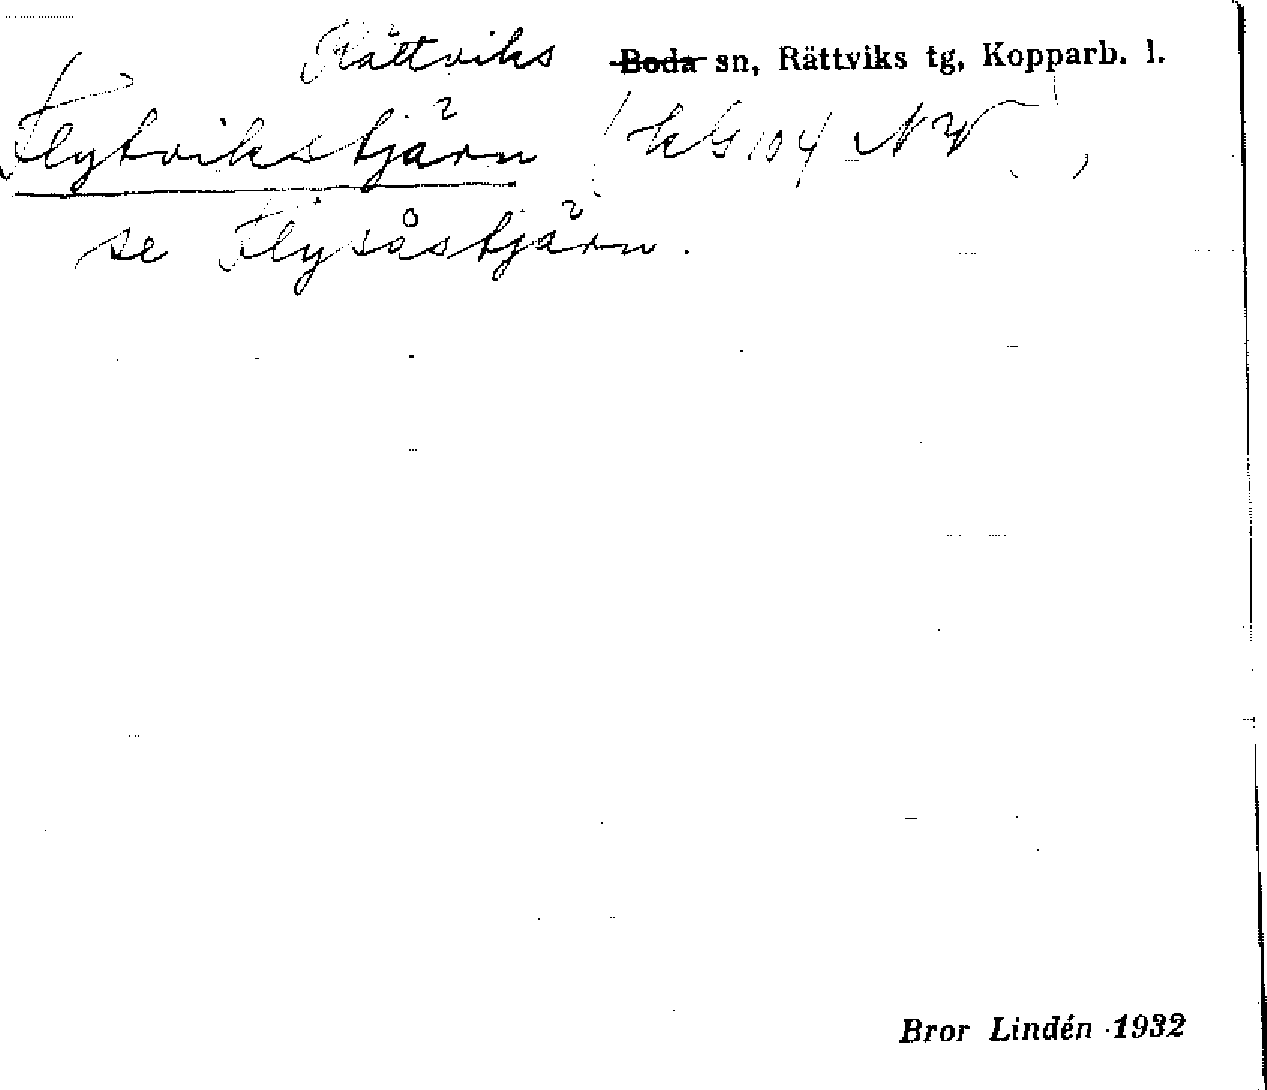 Rättviks Boda sn, Rättviks tg, Kopparb. l.
Flytvikstjärn (kG 104 NV),
se Flysåstjärn.
Bror Lindén 1932